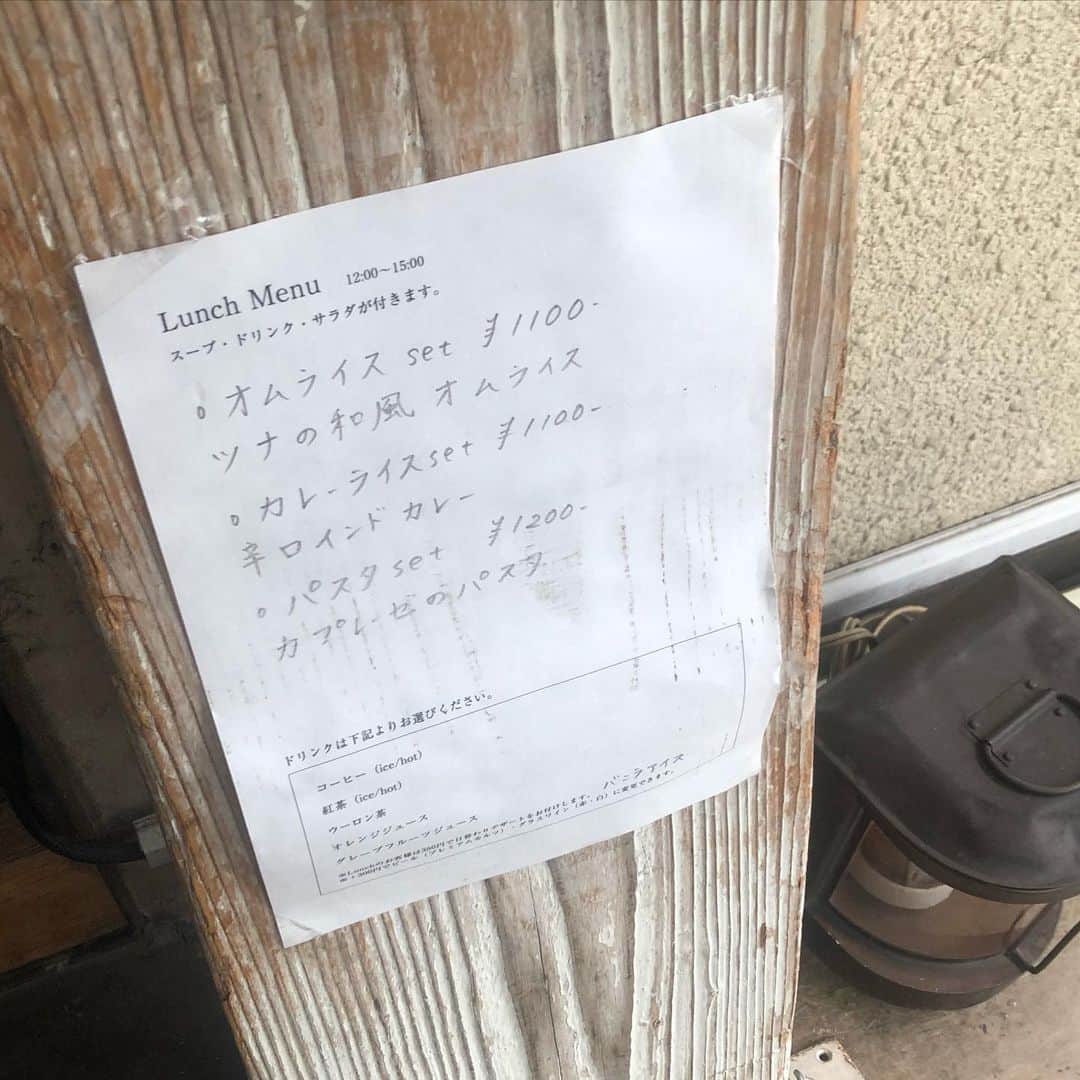 Lunch Menu 12:00～15:00
スープ・ドリンク・サラダが付きます。
。オムライス set ¥1100-
ツナの和風 オムライス
。カレーライスset ¥1100-
辛口インド カレー
。パスタ set ¥1200-
カプレーゼのパスタ
ドリンクは下記よりお選びください。
コーヒー（ice/hot）
紅茶（ice/hot）
ウーロン茶
オレンジジュース
グレープフルーツジュース
バニラアイス
※Lunchのお客様は300円で日替わりデザートをお付けします。
※+300円でビール（プレミアムモルツ）・グラスワイン（赤・白）に変更できます。